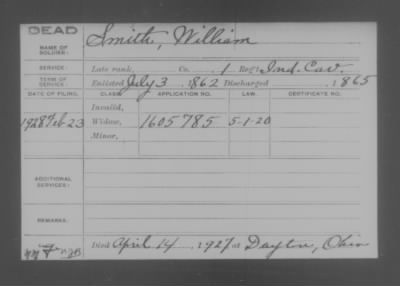 DEAD
NAME OF SOLDIER: Smith, William
SERVICE: Late rank, Co. 1 Reg't Ind. Cav.
TERM OF SERVICE: Enlisted July 3, 1862 Discharged , 1865
DATE OF FILING. CLASS. APPLICATION NO. LAW. CERTIFICATE NO.
Invalid,
1928 Feb-23 Widow, 1605785 5-1-20
Minor,
ADDITIONAL SERVICES:
REMARKS:
Died April 14, 1927 at Dayton, Ohio